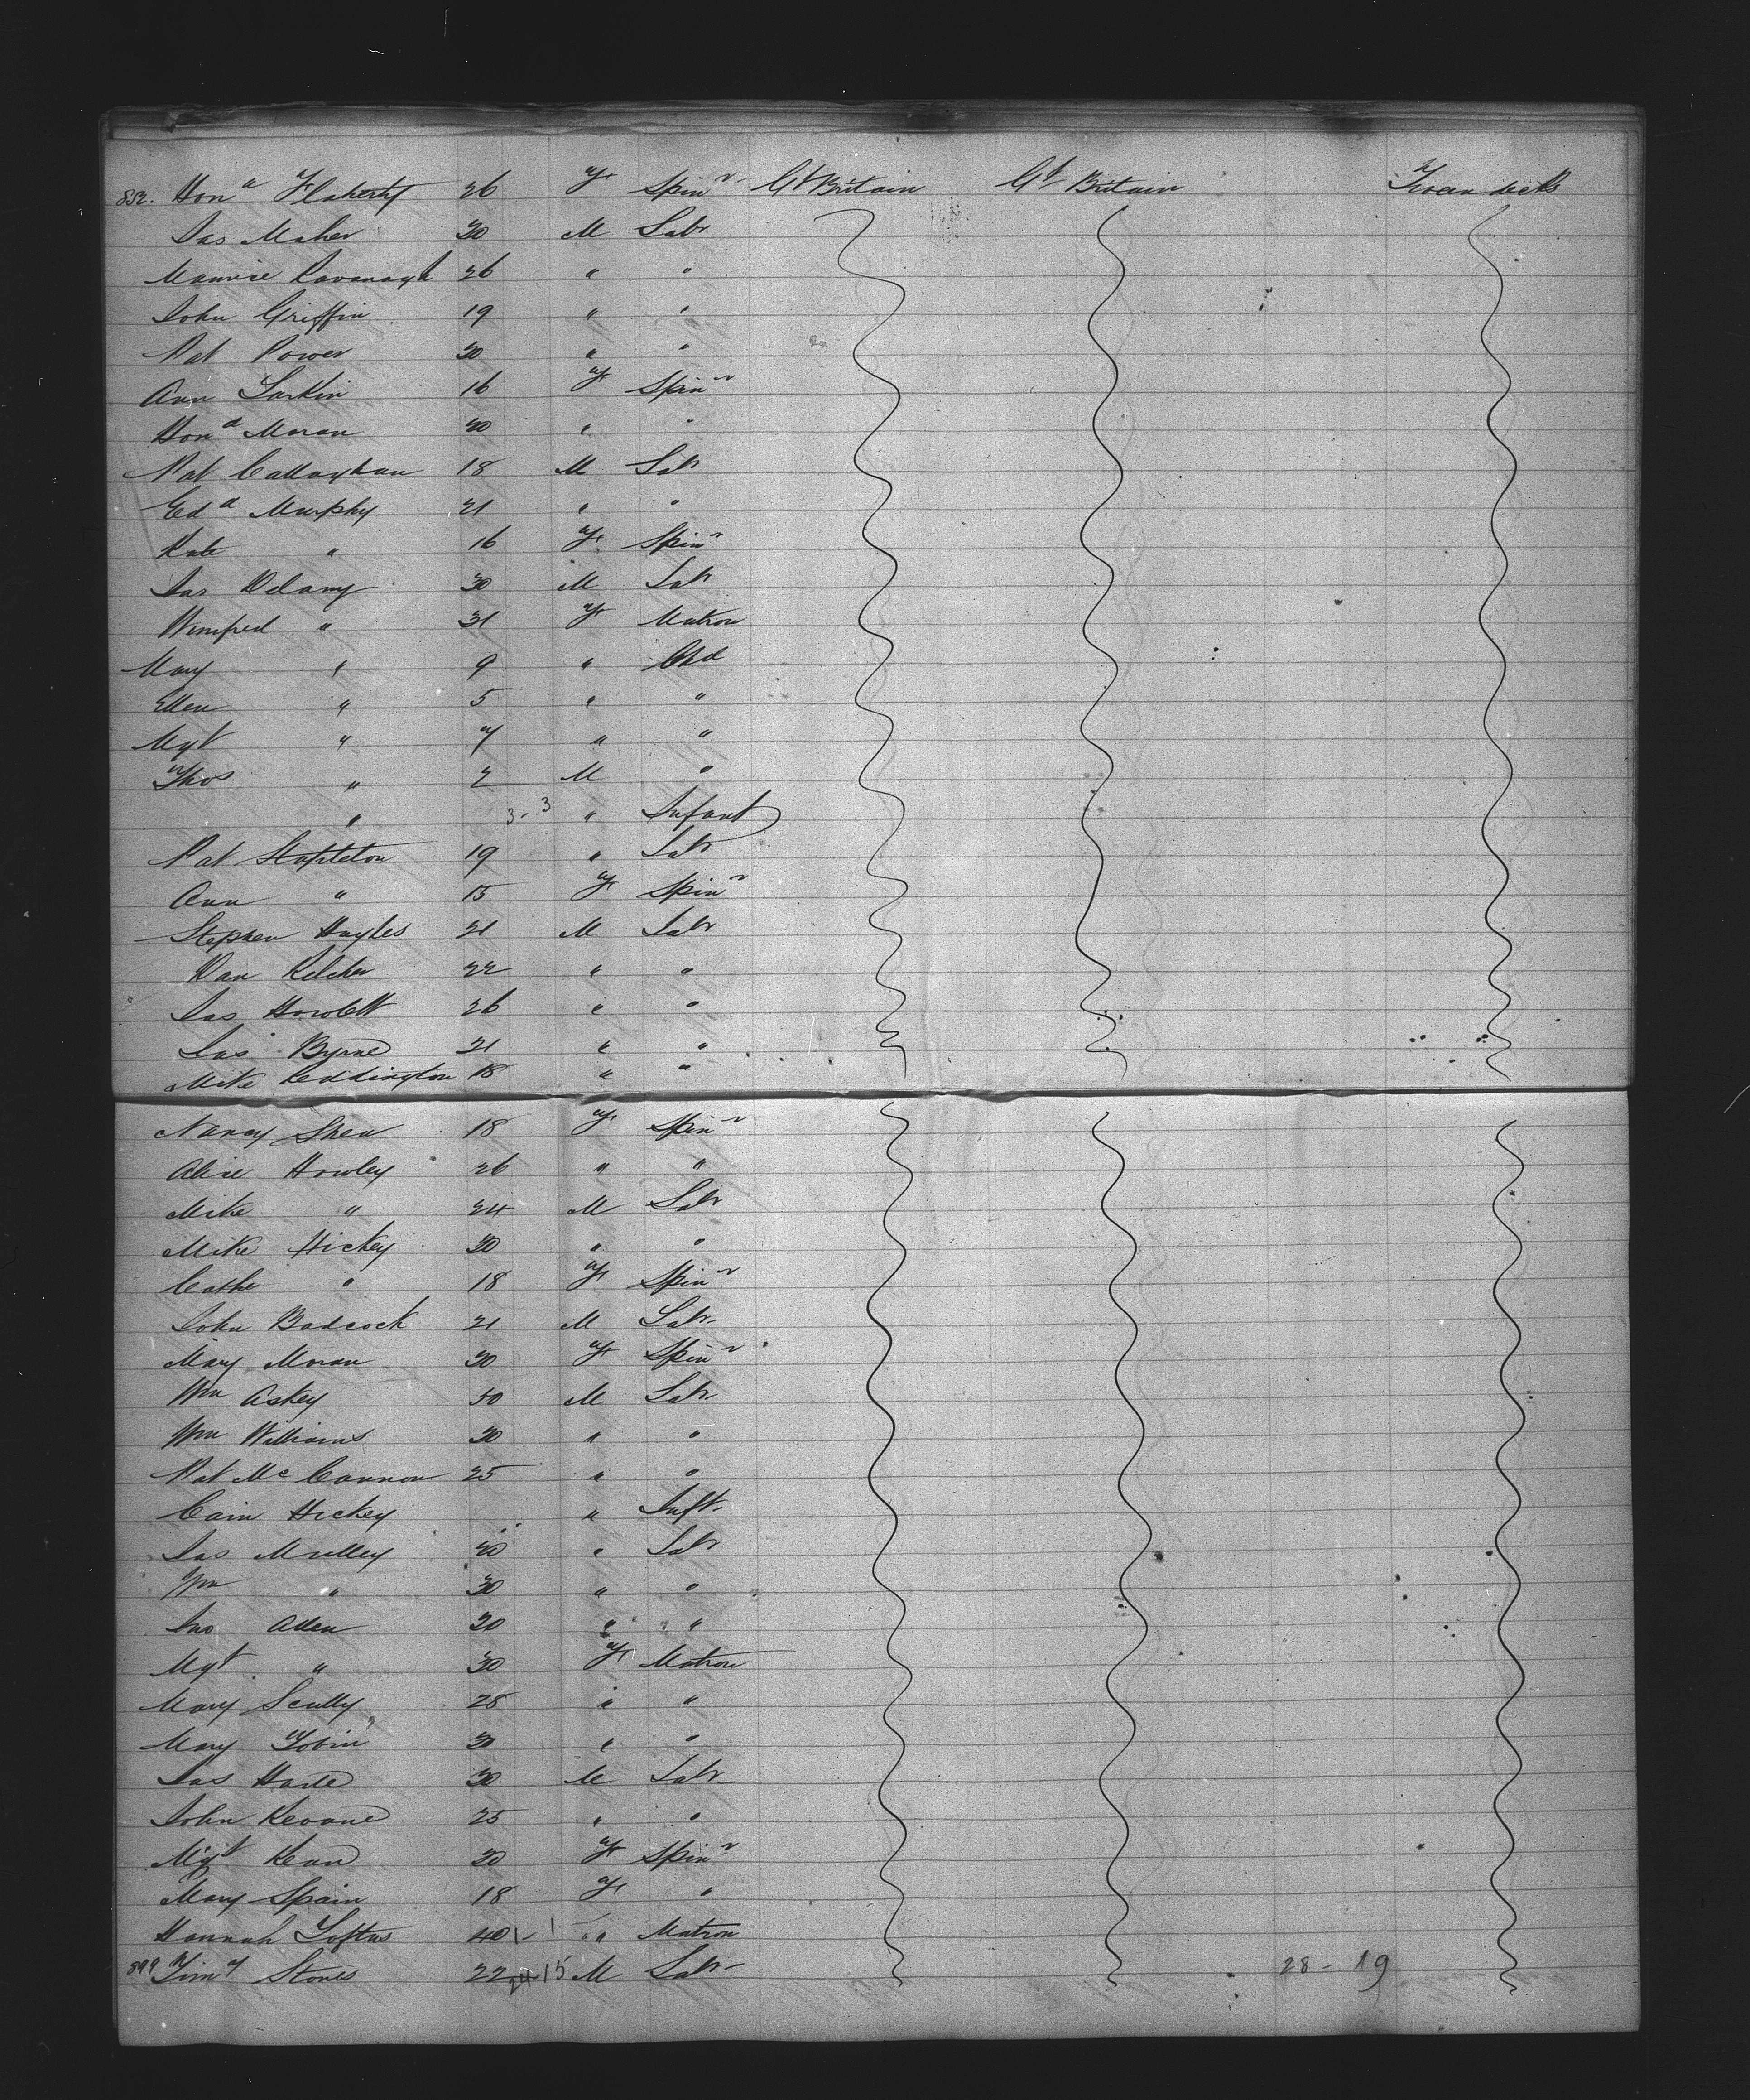 852. Hon^a Flaherty 26 F Spin^r Gt Britain Gt Britain Tween decks
Jas Maher 20 M Labr
Maurice Kavanagh 26 " "
John Griffin 19 " "
Pat Power 20 " "
Ann Larkin 16 F Spin^r
Hon^a Moran 20 " "
Pat Callaghan 18 M Labr
Ed^d Murphy 21 " "
Kate " 16 F Spin^r
Jas Delany 30 M Labr
Winifred " 31 F Matron
Mary " 9 " Chd
Ellen " 5 " "
Mgt " 7 " "
Thos " 2 M "
" 3-3 " Infant
Pat Stapleton 19 " Labr
Ann " 15 F Spin^r
Stephen Hayles 21 M Labr
Dan Kelcher 22 " "
Jas Howlett 26 " "
Jas Byrne 21 " "
Mike Reddington 18 " "
Nancy Shea 18 F Spin^r
Alice Howley 26 " "
Mike " 24 M Labr
Mike Hickey 20 " "
Cathe " 18 F Spin^r
John Badcock 21 M Labr
Mary Moran 20 F Spin^r
Wm Askey 50 M Labr
Wm Williams 20 " "
Pat Mc Cannon 25 " "
Cain Hickey " Inft.
Jas Mulley 20 " Labr
Wm " 30 " "
Jno Allen 20 " "
Mgt " 30 F Matron
Mary Scully 28 " "
Mary Tobin 30 " "
Jas 30 M Labr
John Keoane 25 " "
Mgt Kean 20 F Spin^r
Mary Spain 18 F "
Hannah Loftus 40 1-1 " Matron
899 Tim^y Stones 22 24 15 M Labr 28-19